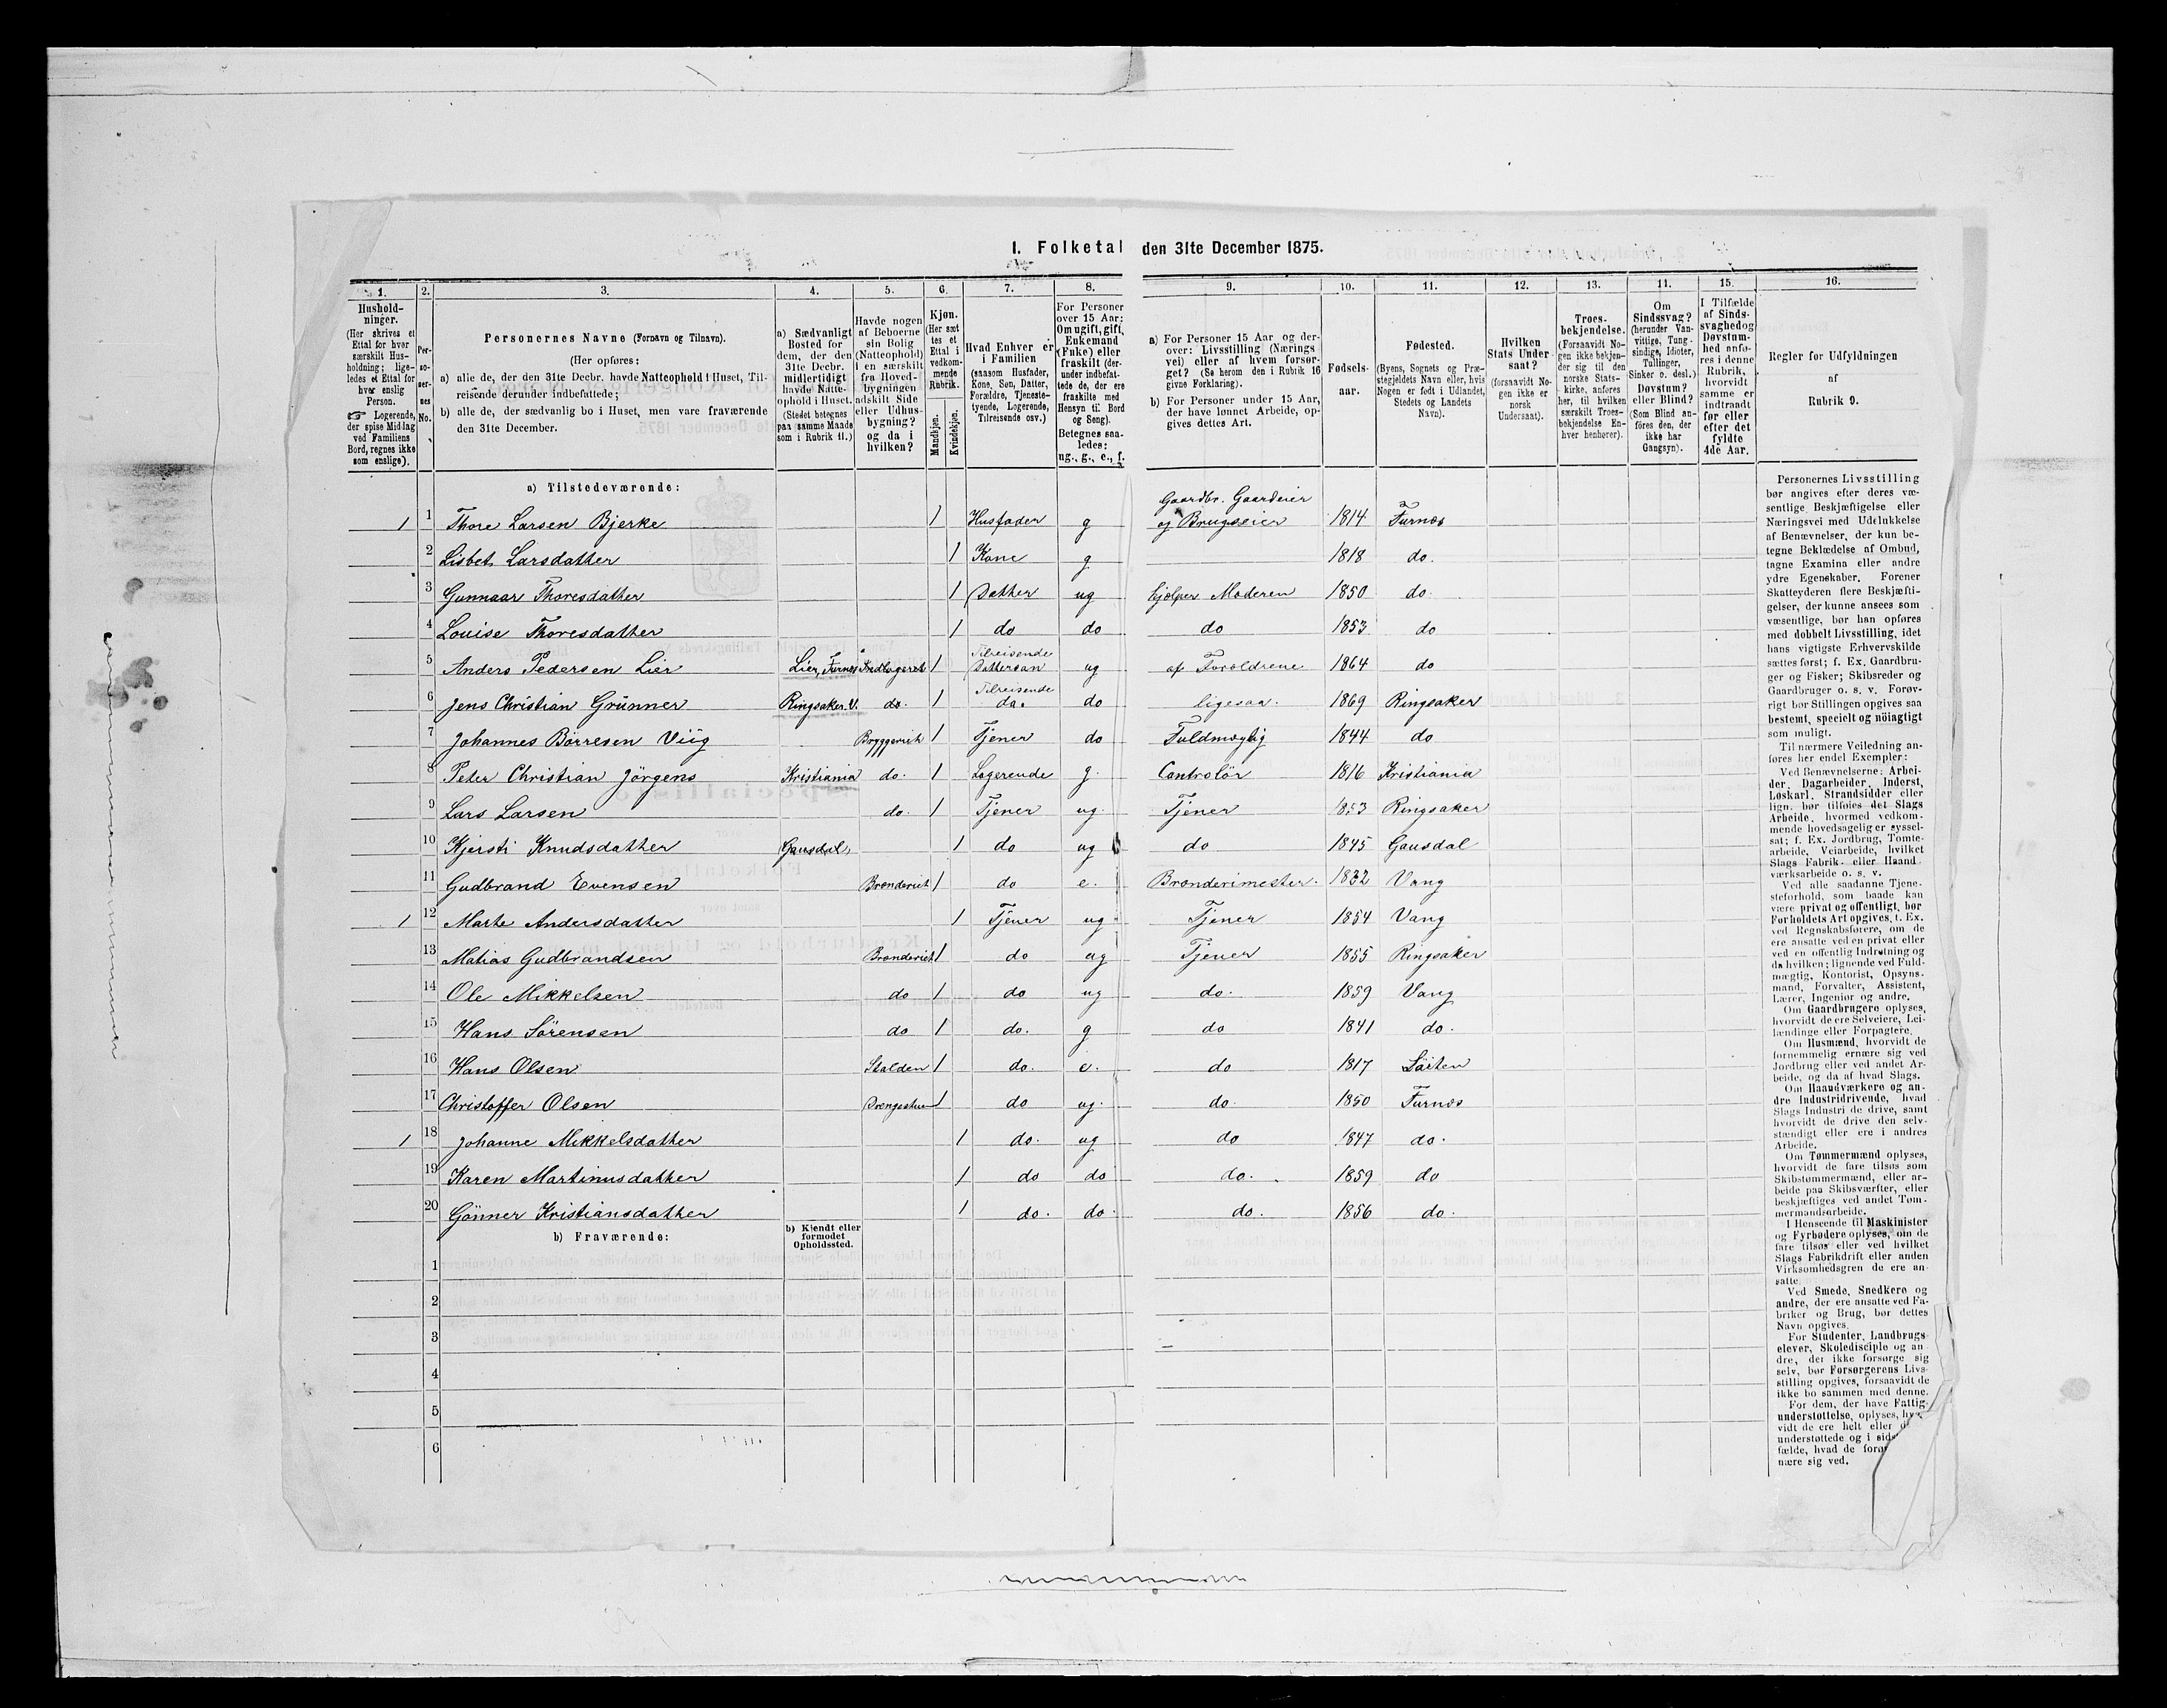 1. Folketal den 31te December 1875.
1. 2. 3. 4. 5. 6. 7. 8. 9. 10. 11. 12. 13. 11. 15. 16.
Hushold-
ninger.
(Her skrives et
Ettal for hver
særskilt Hus-
holdning; lige-
ledes et Ettal for
hver enslig
Person.
☞ Logerende,
der spise Middag
ved Familiens
Bord, regnes ikke
som enslige).
Per-
so-
ner-
nes
No.
Personernes Navne (Fornavn og Tilnavn).
(Her opføres:
a) alle de, der den 31te Decbr. havde Natteophold i Huset, Til-
reisende derunder indbefattede;
b) alle de, der sædvanlig bo i Huset, men vare fraværende
den 31te December.
a) Sædvanligt
Bosted for
dem, der den
31te Decbr.
midlertidigt
havde Natte-
ophold i Huset.
(Stedet betegnes
paa samme Maade
som i Rubrik 11.)
Havde nogen
af Beboerne
sin Bolig
(Natteophold)
i en særskilt
fra Hoved-
bygningen
adskilt Side
eller Udhus-
bygning?
og da i
hvilken?
Kjøn.
(Her sæt
tes et
Ettal i
vedkom-
mende
Rubrik.
Mandkjøn.
Kvindekjøn.
Hvad Enhver er
i Familien
(saasom Husfader,
Kone, Søn, Datter,
Forældre, Tjeneste-
tyende, Logerende,
Tilreisende osv.)
For Personer
over 15 Aar:
Om ugift, gift,
Enkemand
(Enke) eller
fraskilt (der-
under indbefat-
tede de, der ere
fraskilte med
Hensyn til Bord
og Seng).
Betegnes saa-
ledes:
ug., g., e., f.
a) For Personer 15 Aar og der-
over: Livsstilling (Nærings
vei) eller af hvem forsør-
get? (Se herom den i Rubrik 16
givne Forklaring).
b) For Personer under 15 Aar,
der have lønnet Arbeide, op-
gives dettes Art.
Fødsels-
aar.
Fødested.
(Byens, Sognets og Præ-
stegjeldets Navn eller, hvis
Nogen er født i Udlandet,
Stedets og Landets
Navn).
Hvilken
Stats Under
saat?
(forsaavidt No-
gen ikke er
norsk
Undersaat).
Troes-
bekjendelse.
(Forsaavidt No-
gen ikke bekjen-
der sig til den
norske Stats-
kirke, anføres
her, til hvilken
særskilt Troes-
bekjendelse En-
hver henhører).
Om
Sindssvag?
(herunder Van-
vittige, Tung-
sindige, Idioter,
Tullinger,
Sinker o. desl.)
Døvstum?
eller Blind?
(Som Blind an-
føres den, der
ikke har
Gangsyn).
I Tilfælde
af Sinds-
svaghed og
Døvstum-
hed anfø-
res i denne
Rubrik,
hvorvidt
samme er
indtraadt
før eller
efter det
fyldte
4de Aar.
Regler for Udfyldningen
af
Rubrik 9.
a) Tilstedeværende:
Gaardbr. Gaardeier
1 1 Thore Larsen Bjerke 1 Husfader g og Brugseier 1814 Furnes
2 Lisbet Larsdatter 1 Kone g 1818 do.
3 Gunnaar Thoresdatter 1 Datter ug hjelper Moderen 1850 do.
4 Louise Thoresdatter 1 do do do 1853 do
Tilreisende
5 Anders Pedersen Lier Lier, Furnes 1 Dattersøn ug af Forældrene 1864 do
Tilreisende
6 Jens Christian Grünner Ringsaker. V. do. 1 do. do ligesaa. 1869 Ringsaker
7 Johannes Børresen Viig Bryggeriet 1 Tjener do Fuldmægtig 1844 do
8 Peter Christian Jörgens Kristiania do. 1 Logerende g. Controlör 1816 Kristiania
9 Lars Larsen do. 1 Tjener ug. Tjener 1853 Ringsaker
10 Kjersti Knudsdatter Gausdal, 1 do ug do 1845 Gausdal
11 Gudbrand Evensen Brænderiet 1 do e. Brænderimester. 1832 Vang
1 12 Marte Andersdatter 1 Tjener ug. Tjener 1854 Vang
13 Matias Gudbrandsen Brænderiet 1 do ug Tjener 1855 Ringsaker
14 Ole Mikkelsen do 1 do ug do. 1859 Vang
15 Hans Sörensen do 1 do. g do 1841 do.
16 Hans Olsen Stalden 1 do. e. do 1817 Löiten
17 Christoffer Olsen Drengestuen 1 do ug. do. 1850 Furnes
1 18 Johanne Mikkelsdatter 1 do. ug do 1847 do.
19 Karen Martinusdatter 1 do do do. 1859 do
20 Gönner Kristiansdatter 1 do. do. do. 1856 do.
b) Fraværende:
b) Kjendt eller
formodet
Opholdssted.
1
2
3
4
5
6
Personernes Livsstilling
bør angives efter deres væ-
sentlige Beskjæftigelse eller
Næringsvei med Udelukkelse
af Benævnelser, der kun be-
tegne Beklædelse af Ombud,
tagne Examina eller andre
ydre Egenskaber. Forener
Skatteyderen flere Beskjæfti-
gelser, der kunne ansees som
væsentlige, bør han opføres
med dobbelt Livsstilling, idet
hans vigtigste Erhvervskilde
sættes først; f. Ex. Gaardbru-
ger og Fisker; Skibsreder og
Gaardbruger o. s. v. Forøv-
rigt bør Stillingen opgives saa
bestemt, specielt og nöiagtigt
som muligt.
Til nærmere Veiledning an-
føres her endel Exempler:
Ved Benævnelserne: Arbei-
der, Dagarbeider, Inderst,
Løskarl, Strandsidder eller
lign. bør tilføies det Slags
Arbeide, hvormed vedkom-
mende hovedsagelig er syssel-
sat; f. Ex. Jordbrug, Tomte-
arbeide, Veiarbeide, hvilket
Slags Fabrik- eller Haand-
værksarbeide o. s. v.
Ved alle saadanne Tjene-
steforhold, som baade kan
være privat og offentligt, bør
Forholdets Art opgives, f. Ex.
ved Regnskabsførere, om de
ere ansatte ved en privat eller
ved en offentlig Indretning og
da hvilken; lignende ved Fuld-
mægtig, Kontorist, Opsyns-
mand, Forvalter, Assistent,
Lærer, Ingeniør og andre.
Om Gaardbrugere oplyses,
hvorvidt de ere Selveiere, Lei-
lændinge eller Forpagtere.
Om Husmænd, hvorvidt de
fornemmelig ernære sig ved
Jordbrug eller ved andet Ar-
beide, og da af hvad Slags.
Om Haandværkere og an-
dre Industridrivende, hvad
Slags Industri de drive, samt
hvorvidt de drive den selv-
stændigt eller ere i andres
Arbeide.
Om Tømmermænd oplyses,
hvorvidt de fare tilsøs som
Skibstømmermænd, eller ar-
beide paa Skibsværfter, eller
beskjæftiges ved andet Tøm-
mermandsarbeide.
I Henseende til Maskinister
og Fyrbødere oplyses, om de
fare tilsøs eller ved hvilket
Slags Fabrikdrift eller anden
Virksomhedsgren de ere an-
satte.
Ved Smede, Snedkere og
andre, der ere ansatte ved Fa-
briker og Brug, bør dettes
Navn opgives.
For Studenter, Landbrugs-
elever, Skoledisciple og an-
dre, der ikke forsørge sig
selv, bør Forsørgerens Livs-
stilling opgives, forsaavidt de
ikke bo sammen med denne.
For dem, der have Fattig-
understøttelse, oplyses,
vidt de ere helt eller
understøttede og i
fælde, hvad de
nære sig ved.